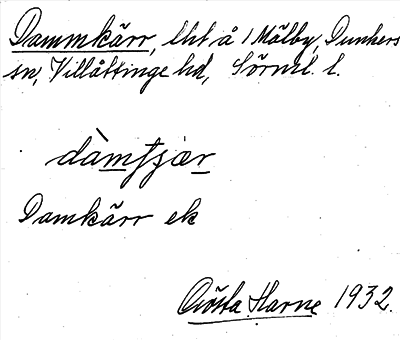 Dammkärr, lht å 1 Mälby, Dunkers
sn, Villåttinge hd, Sörml. l.
dàmtjær
Damkärr ek
Gösta Harne 1932.